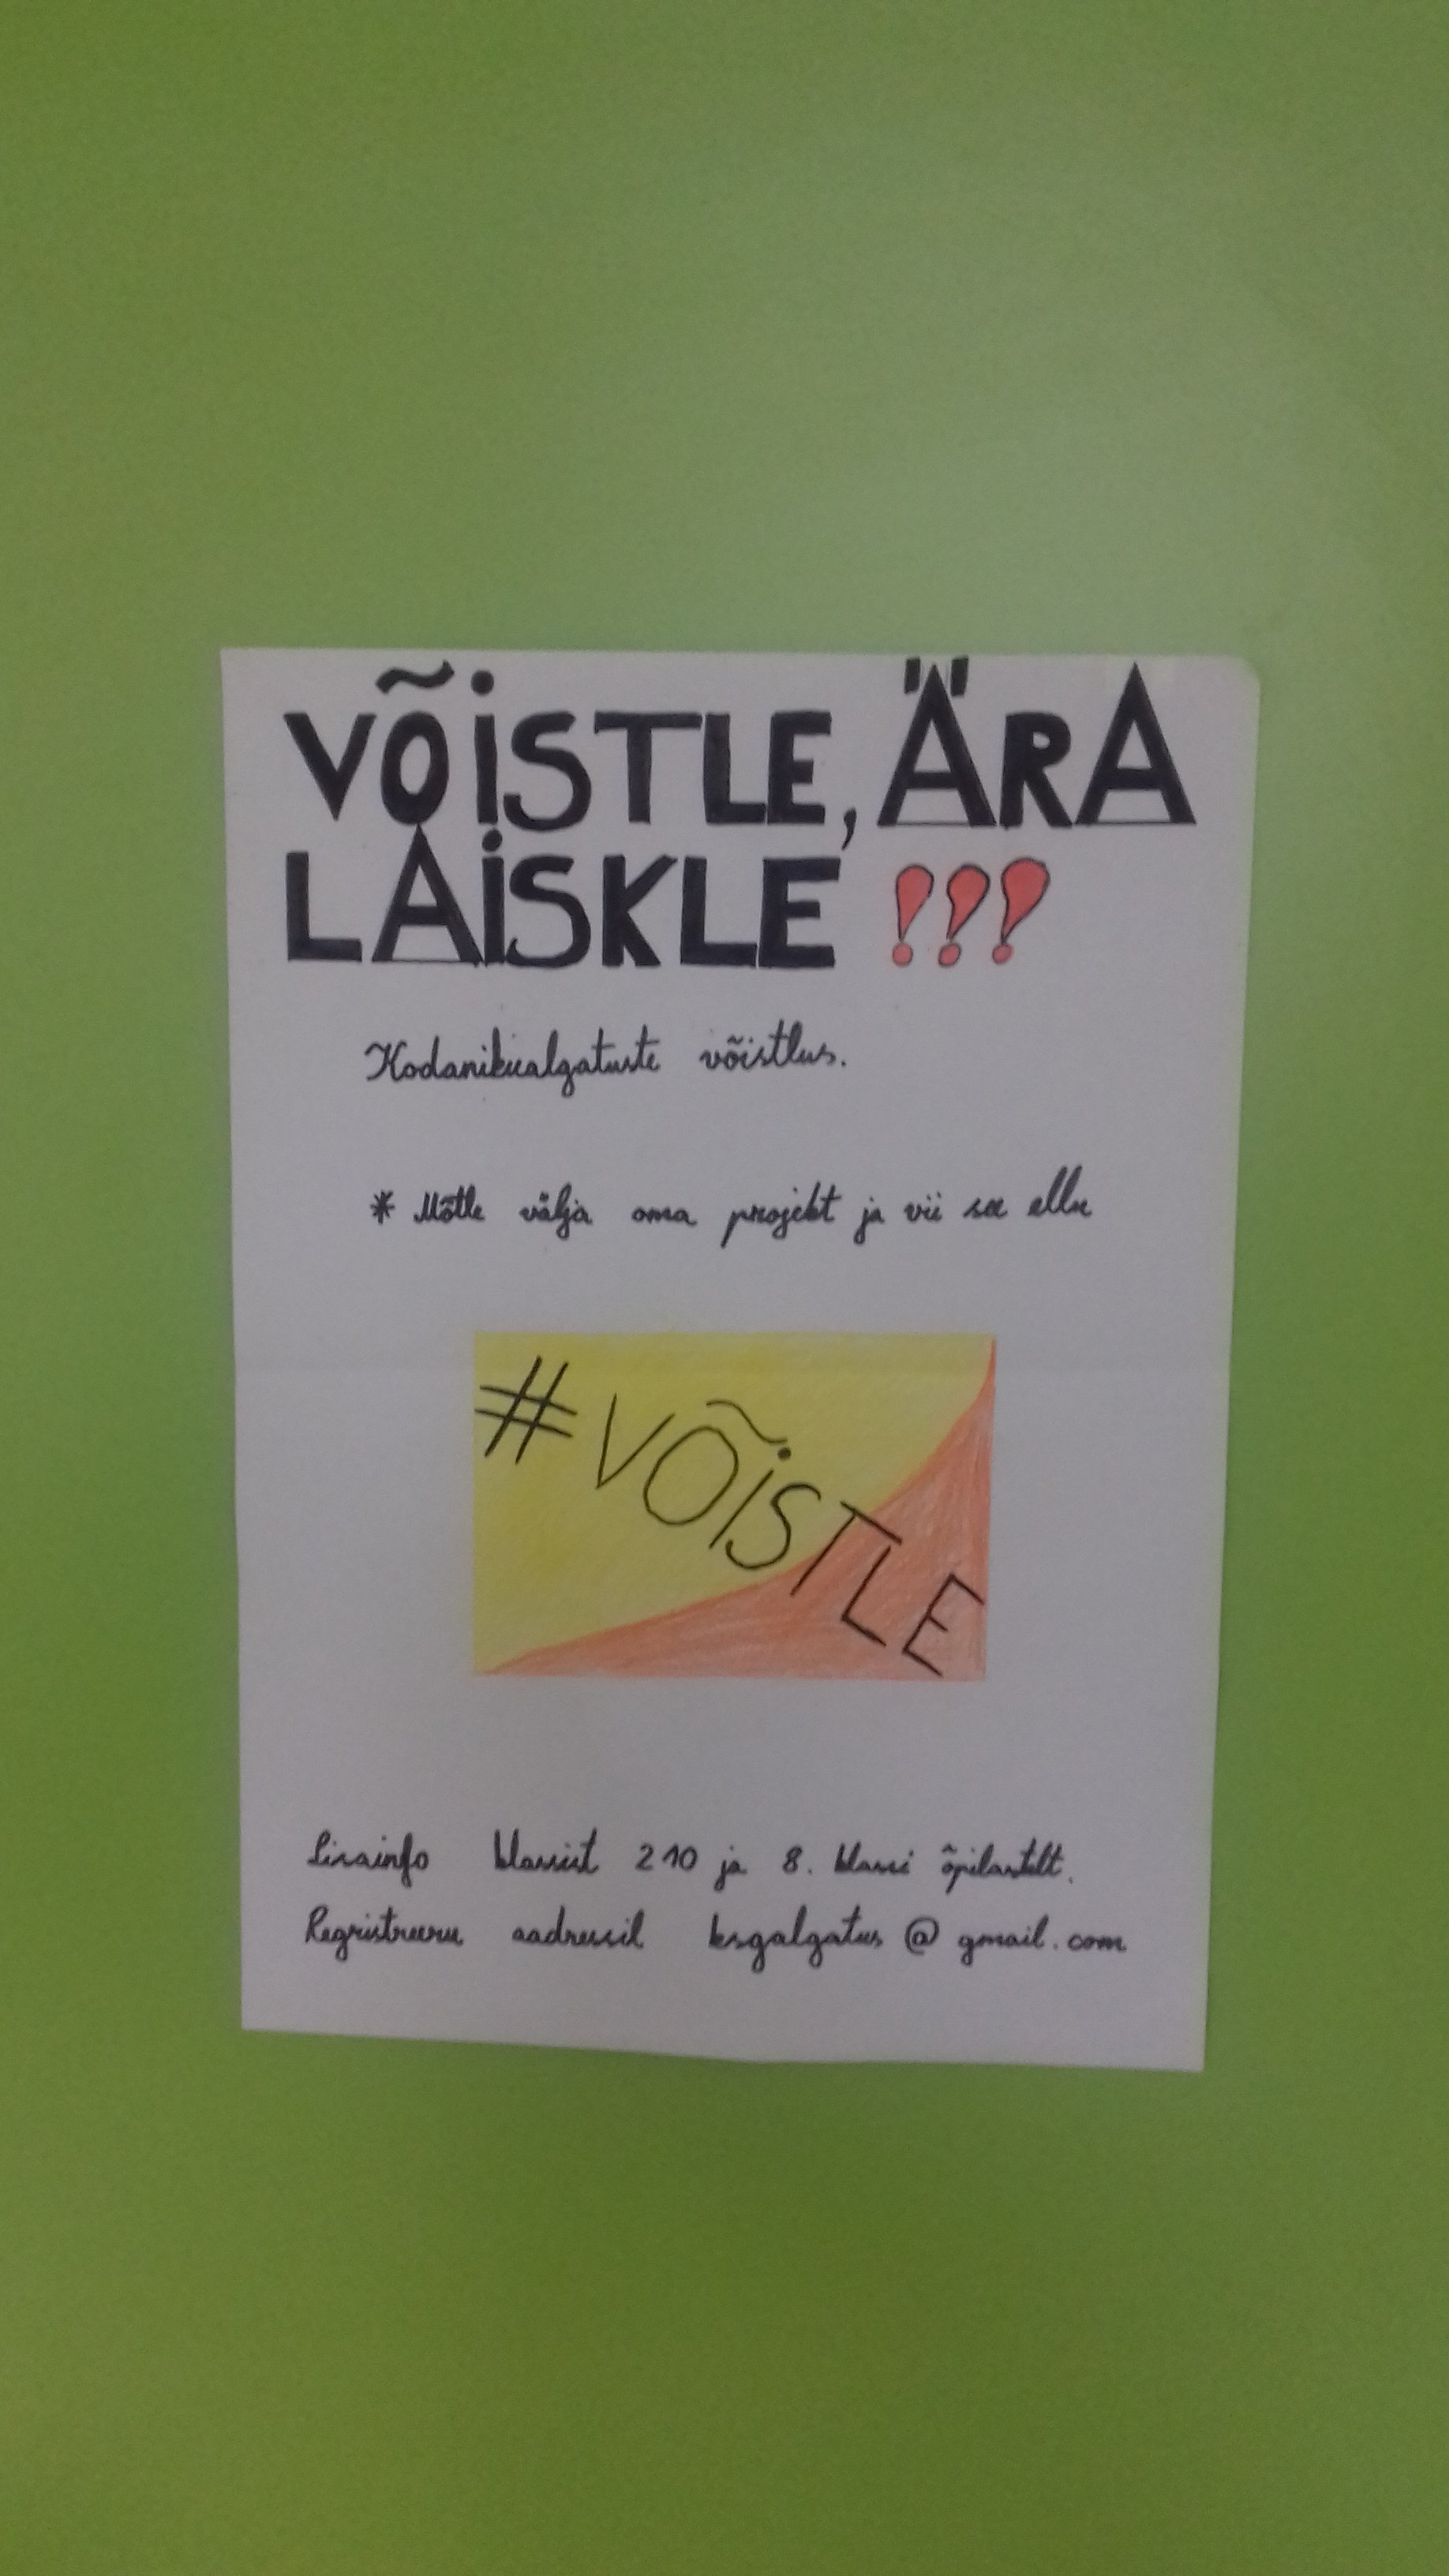 VÕiSTLE, ÄRA
LAiSKLE !!!
Kodanikualgatuste võistlus.
* Mõtle välja oma projekt ja vii see ellu
#VÕiSTLE
Lisainfo klassist 210 ja 8. klassi õpilastelt.
Regristreeru aadressil ksgalgatus@gmail.com